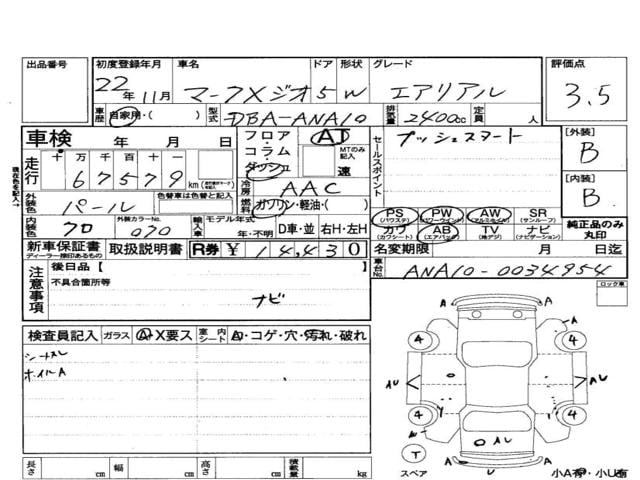 出品番号 初度登録年月 車名 ドア 形状 グレード 評価点
22年11月 マークXジオ 5 W エアリアル 3.5
車歴 自家用・( ) 型式 DBA-ANA10 排気量 2400cc 定員 人
車検 年 月 日 フロア・コラム・ダッシュ AT MTのみ記入 速 セールスポイント プッシュスタート [外装] B
走行 十万千百十一 67579 km 冷房 AAC [内装] B
現在色を記入→
外装色 パール 色替車は色替と記入 燃料 ガソリン・軽油・( )
PS (パワステ) PW (パワーウインド) AW (アルミホイル) SR (サンルーフ)
カワ (カワシート) AB (エアバック) TV (地デジ) ナビ (ナビゲーション) 純正品のみ丸印
内装色 クロ 外装カラーNo. 070 輸入車 モデル年式 年・不明 D車・並 右H・左H
新車保証書 ディーラー捺印あるもの 取扱説明書 R券 ¥14,430 名変期限 月 日迄
注意事項 後日品【 】 車台No. ANA10-0034954
不具合箇所等 ロック車
ナビ
検査員記入 ガラス A・X要ス 室内シート A・コゲ・穴・汚れ・破れ
ホイルA
4 4
AU AU
4 4
A U
T
スペア U 小A有・小U有
長さ cm 幅 cm 高さ cm 積載量 kg